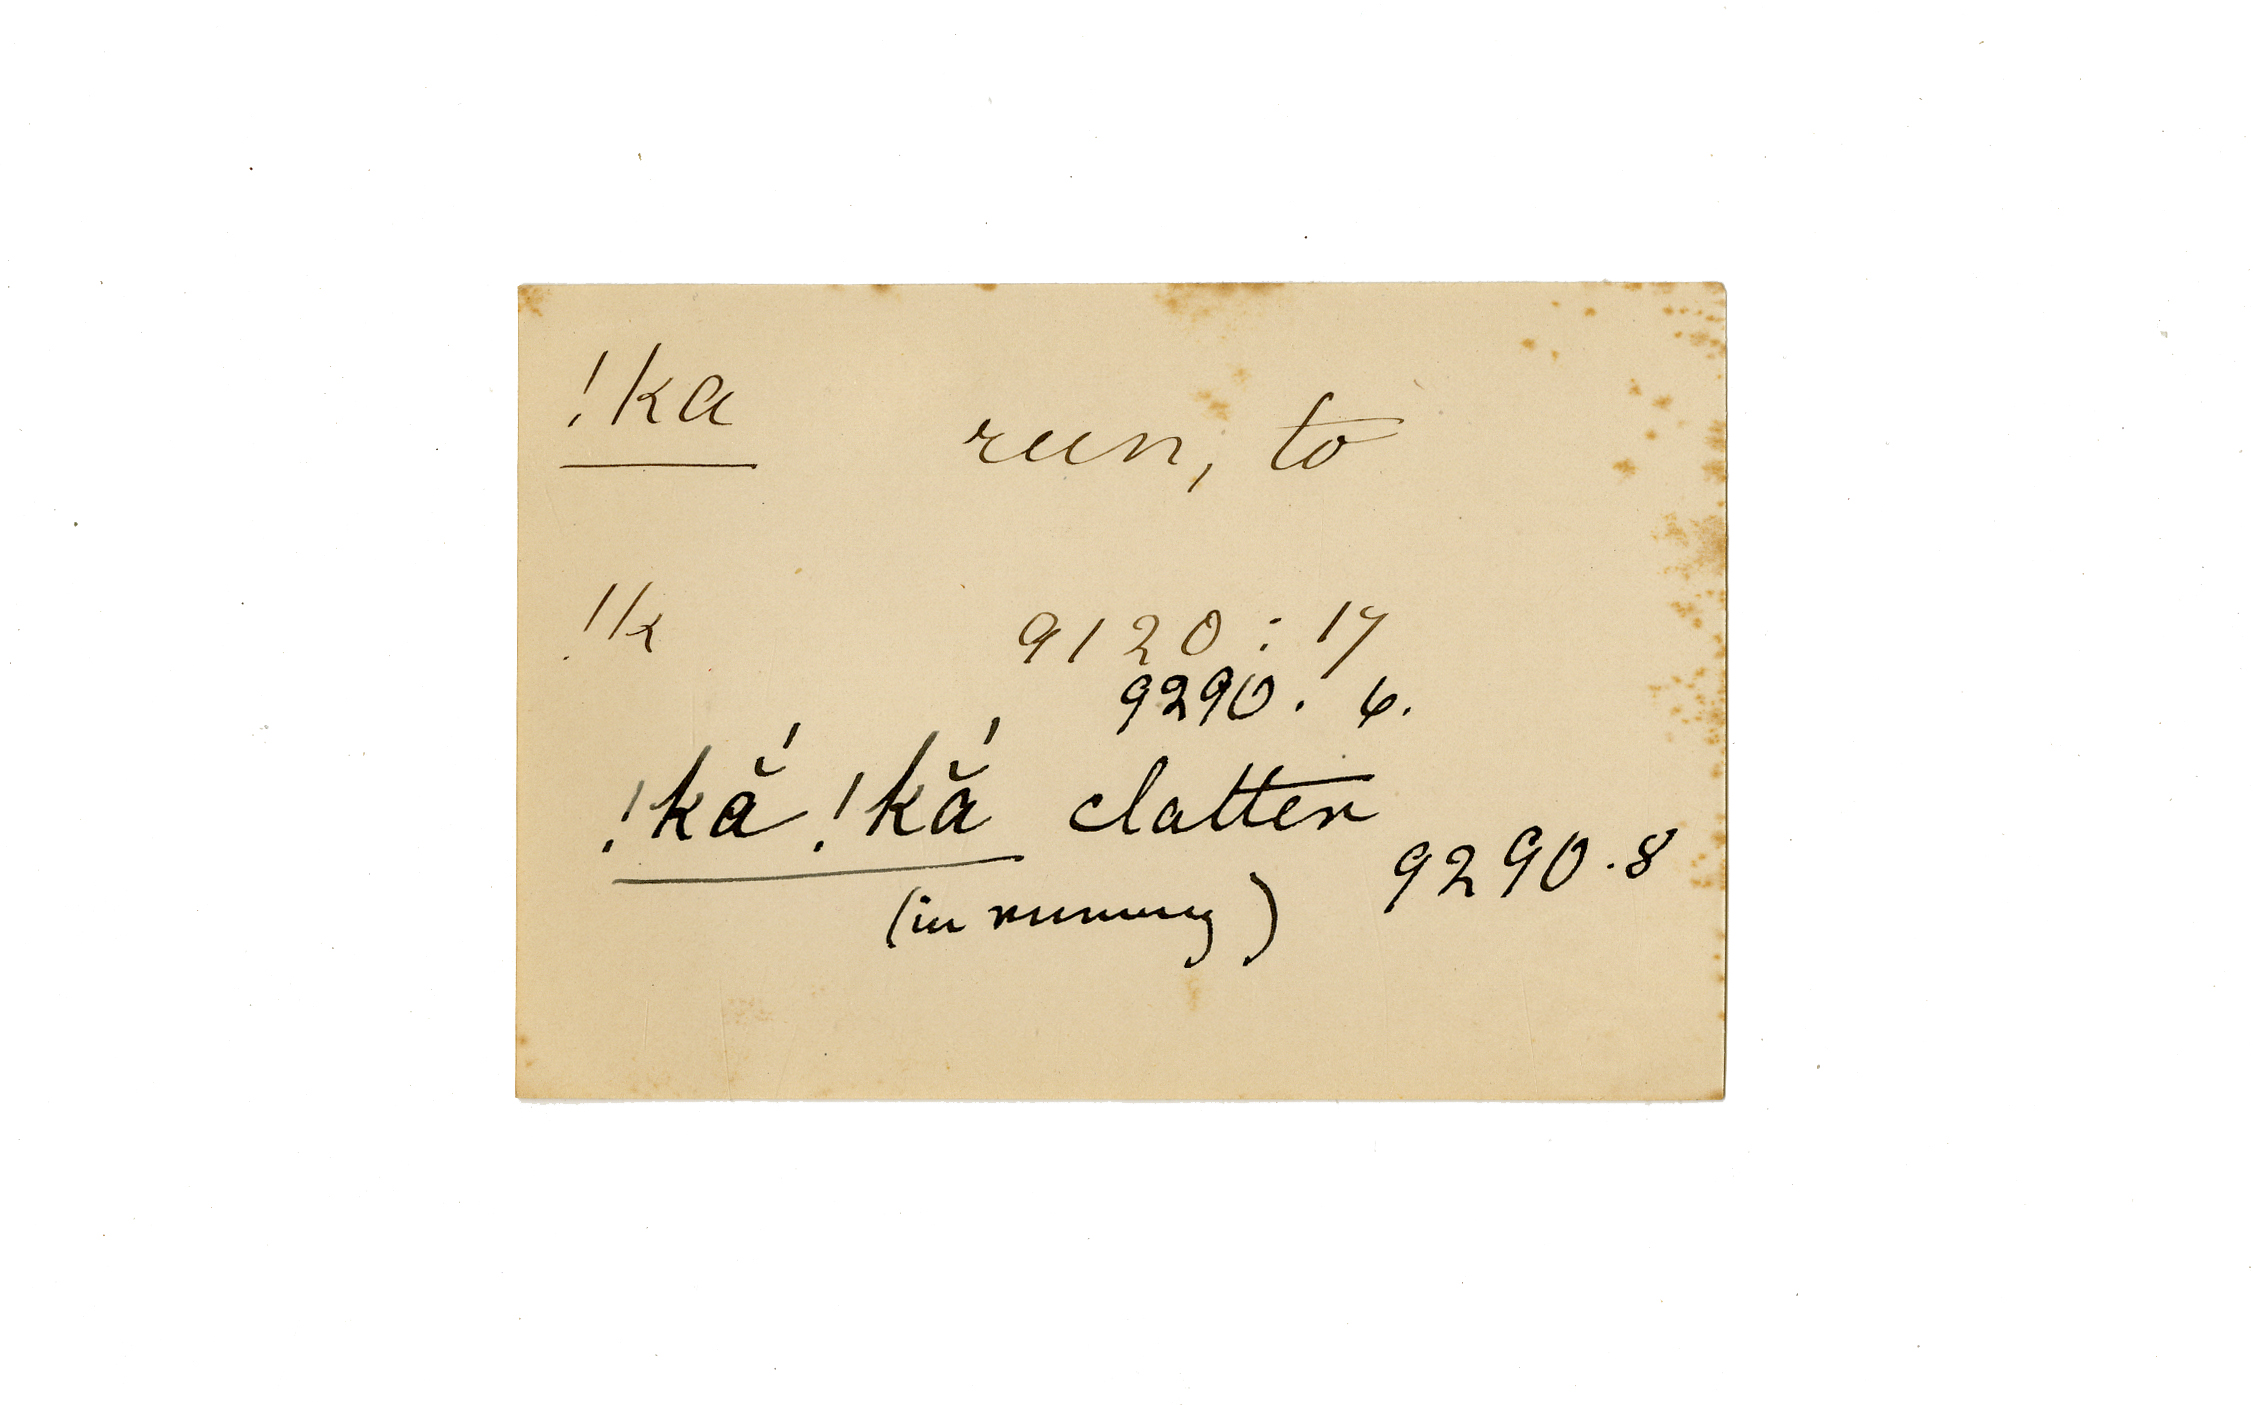 !ka run, to
!k 9120 : 17
9290 . 6.
!kắ !kắ clatter
9290 . 8
(in running)